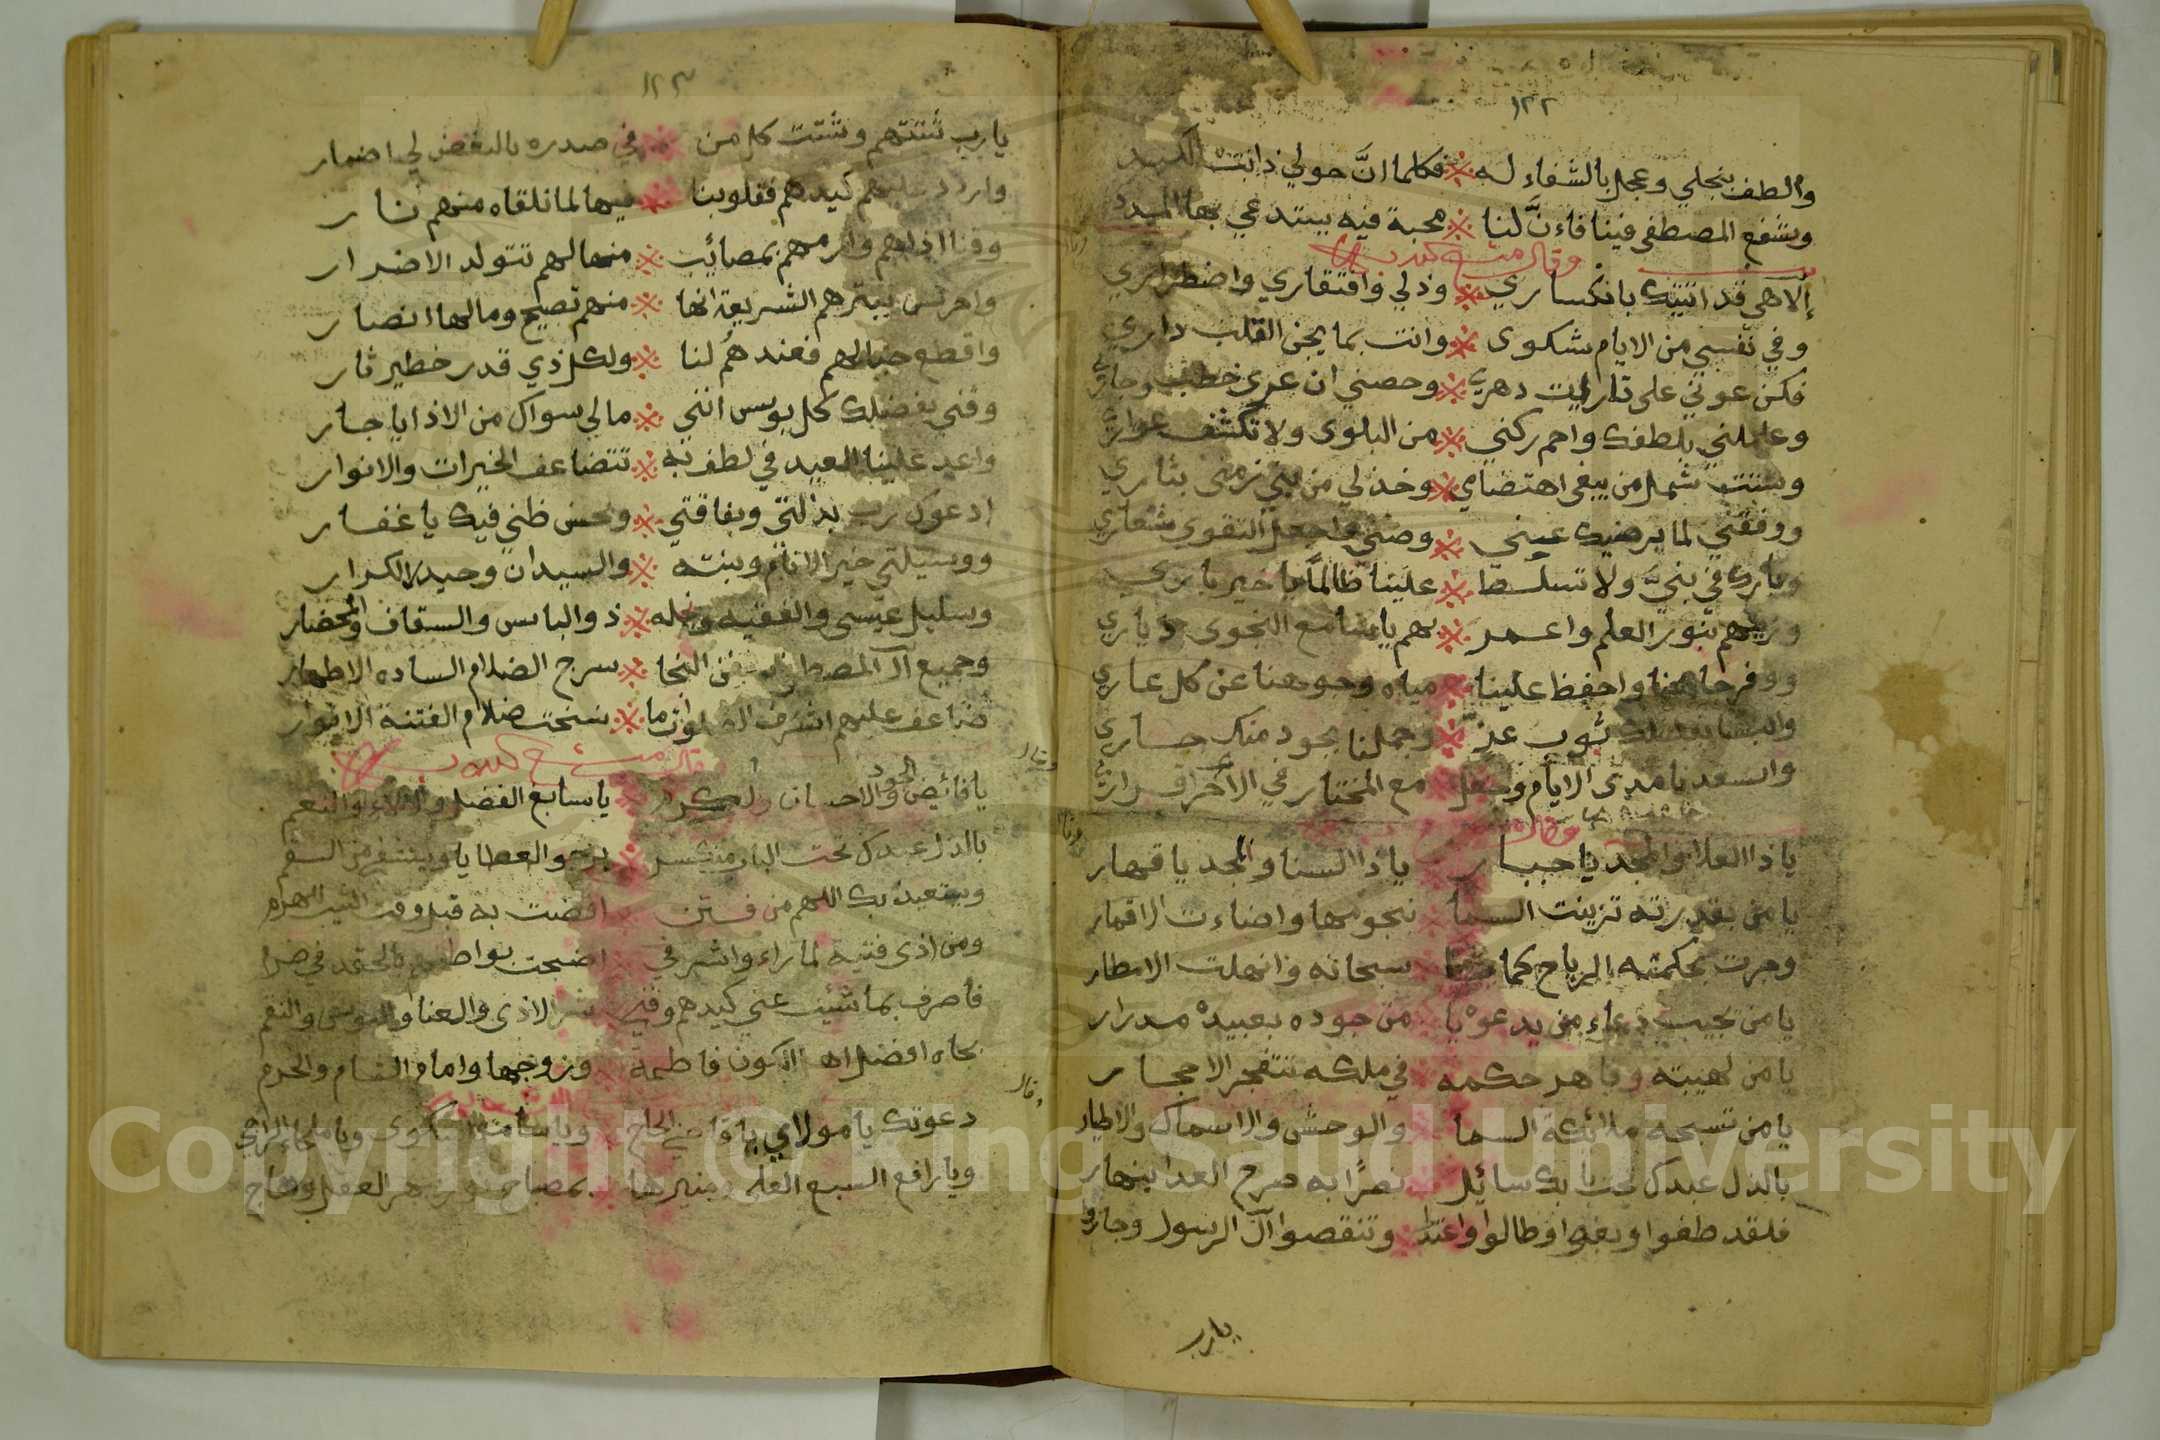 ١٢٢
والطف بنجلي وعجل بالشفاء له ※ فكلما انَّ حولي ذابت الكبد
وشفع المصطفى فينا فاءنَّ لنا ※ محبة فيه يبتدعي بها المدد
وقال
إلاهي قد اتيتك بانكساري ※ وذلي وافتقاري واضطراري
وفي نفسي من الايام شكوى ※ وانت بما يجن القلب داري
فكن عوني على دهري ※ وحصني ان عرى خطب وجاري
وعاملني بلطفك واحم ركني ※ من البلوى ولا تكشف عواري
وشتت شمل من يبغي اهتضامي ※ وخذ لي من بني زمني بثاري
ووفقني لما يرضيك عيني ※ وصني واجعل التقوى شعاري
وبارك في بنيَّ ولا تسلط ※ علينا ظالماً يا خير باري
وزينهم بنور العلم واعمر ※ بهم يا سامع النجوى دياري
ووفر جاهنا واحفظ علينا ※ مياه وجوهنا عن كل عاري
ثوب عزّ ※ وجملنا بجود منك ساري
واسعدنا مدى الايام واجعل ※ مع المختار في الاخرى قراري
وقال
يا ذا العلا والمجد يا جبار يا ذا السنا والمجد يا قهار
يا من بقدرته تزينت السما نجومها واضاءت الاقمار
وجرت بحكمته الرياح كما سبحانه وانهلت الامطار
يا من يجيب دعاء من يدعو يا من جوده بعبيده مدرار
يا من لهيبته وباهر حكمه في ملكه تتفجر الاحجار
يا من تسبحه ملائكة السما والوحش والاسماك والاطيار
بالذل عبدك تحت بابك سائل نصرًا به صرح العدا ينهار
فلقد طغوا وبغوا وطالوا واعتدوا ※ وتنقصوا آل الرسول وجاروا
يارب
١٢٣
يارب شتتهم وشتت كل من ※ في صدره بالبغض لي اضمار
واردد عليهم كيدهم فقلوبنا ※ فيها لما نلقاه منهم نار
وقنا اذاهم وارمهم بمصائب ※ منها لهم تتولد الاضرار
واحرس ببترهم الشريعة انها ※ منهم تصيح وما لها انصار
واقطع حبالهم فعندهُم لنا ※ ولكل ذي قدر خطير ثار
وقني بفضلك كل بوس انني ※ ما لي سواك من الاذايا جار
واعد علينا العيد في لطف به ※ تتضاعف الخيرات والانوار
ادعوك رب بذلتي وبفاقتي ※ وبحسن ظني فيك يا غفار
ووسيلتي خير الانام وبنته ※ والسيدان وحيدر الكرار
وسليل عيسى والفقيه ونجله ※ ذو الباس والسقاف والمحضار
وجميع آل المصطفى سفن النجا ※ سرج الضلام الساده الاطهار
ضاعف عليهم اشرف الصلوات ما ※ نسخت ضلام الفتنة الانوار
وقال
يا فائض الجود والاحسان والكرم يا سابغ الفضل والالاء والنعم
بالذل عبدك تحت الباب منكسر ※ يرجو العطايا ويستشفي من السقم
ويستعيذ بك اللهم من فتن افضت به قبل وقت الشيب للهرم
ومن اذى فتية اضحت بواطنهم بالحقد في ضرم
فاصرف بما شئت عني كيدهم وقني شر الاذى والعنا والبوس والنقم
بجاه افضل اهل الكون فاطمة وزوجها وامام الشام والحرم
وقال
دعوتك يا مولاي يا قاضي الحاج ويا سامع الشكوى ويا ملجاء الراجي
ويا رافع السبع العلى ومنيرها بمصباح
Copyright © King Saud University